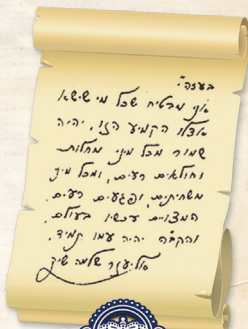 בעזה"י
אני מבטיח שכל מי שישא
אצלו הקמיע הזו, יהיה
שמור מכל מיני מחלות
וחולאים רעים, ומכל מיני
משחיתים, ופגעים רעים
המצויים עכשיו בעולם
והקב"ה יהיה עמו תמיד.
אליעזר שלמה שיק